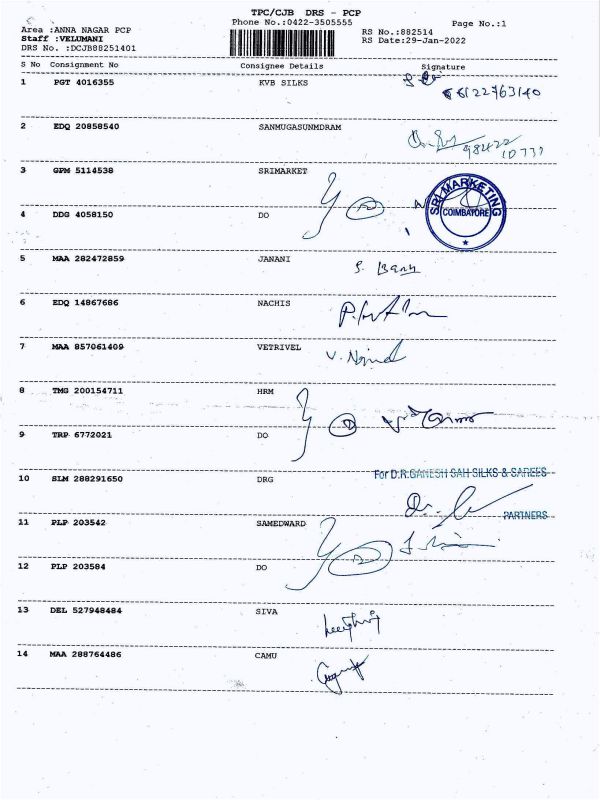 TPC/CJB DRS - PCP
Phone No.:0422-3505555 Page No.:1
Area :ANNA NAGAR PCP RS No.:882514
Staff :VELUMANI RS Date:29-Jan-2022
DRS No. :DCJB88251401
S No Consignment No Consignee Details Signature
1 PGT 4016355 KVB SILKS
2 EDQ 20858540 SANMUGASUNMDRAM
98422
10737
3 GPM 5114538 SRIMARKET
SRI MARKETING
COIMBATORE
4 DDG 4058150 DO
5 MAA 282472859 JANANI
6 EDQ 14867686 NACHIS
7 MAA 857061409 VETRIVEL
8 TMG 200154711 HRM
9 TRP 6772021 DO
10 SLM 288291650 DRG For D.R.GANESH SAH SILKS & SAREES
PARTNERS
11 PLP 203542 SAMEDWARD
12 PLP 203584 DO
13 DEL 527948484 SIVA
14 MAA 288764486 CAMU